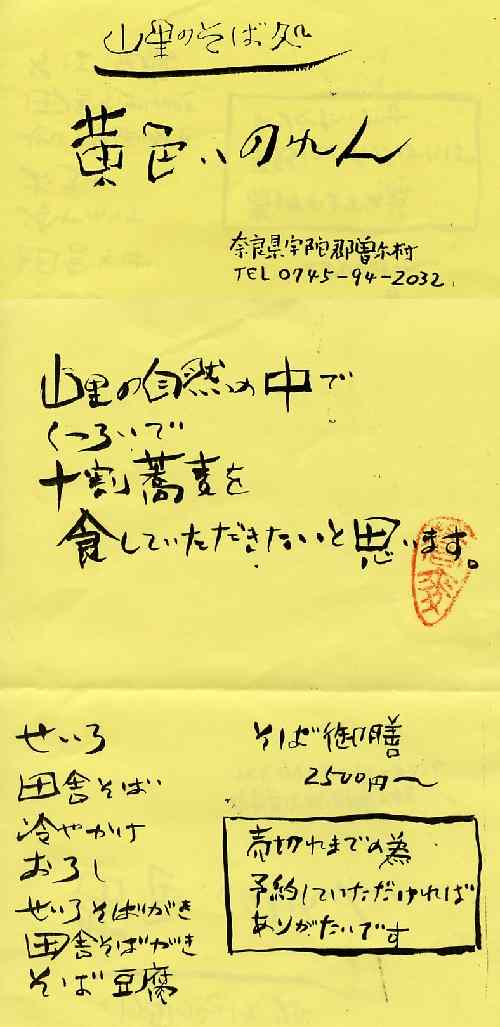 山里のそば処
黄色いのれん
奈良県宇陀郡曽尓村
TEL 0745-94-2032
山里の自然の中で
くつろいで
十割蕎麦を
食していただきたいと思います。
せいろ
田舎そば
冷やかけ
おろし
せいろそばがき
田舎そばがき
そば豆腐
そば御膳
2500円〜
売切れまでの為
予約していただければ
ありがたいです